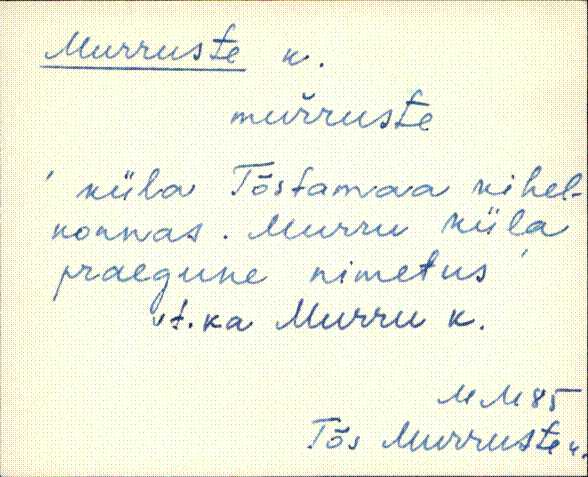 Murruste k.
mur̆ruste
' küla Tõstamaa kihel-
konnas. Murru küla
praegune nimetus '
vt. ka Murru k.
MM85
Tõs Murruste k.